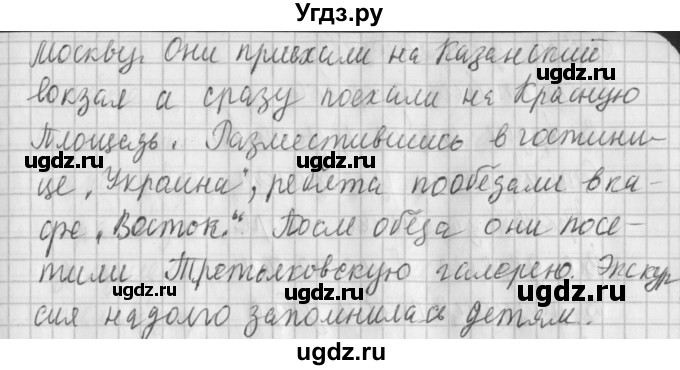 Угдз.ру
Москву. Они приехали на Казанский
вокзал и сразу поехали на Красную
Площадь. Разместившись в гостини-
це „Украина“, ребята пообедали в ка-
фе „Восток.“ После обеда они посе-
тили Третьяковскую галерею. Экскур
сия надолго запомнилась детям.
uгдz.ру
uгдz.ру
uгдz.ру
uгдz.ру
uгдz.ру
uгдz.ру
uгдz.ру
uгдz.ру
uгдz.ру
uгдz.ру
uгдz.ру